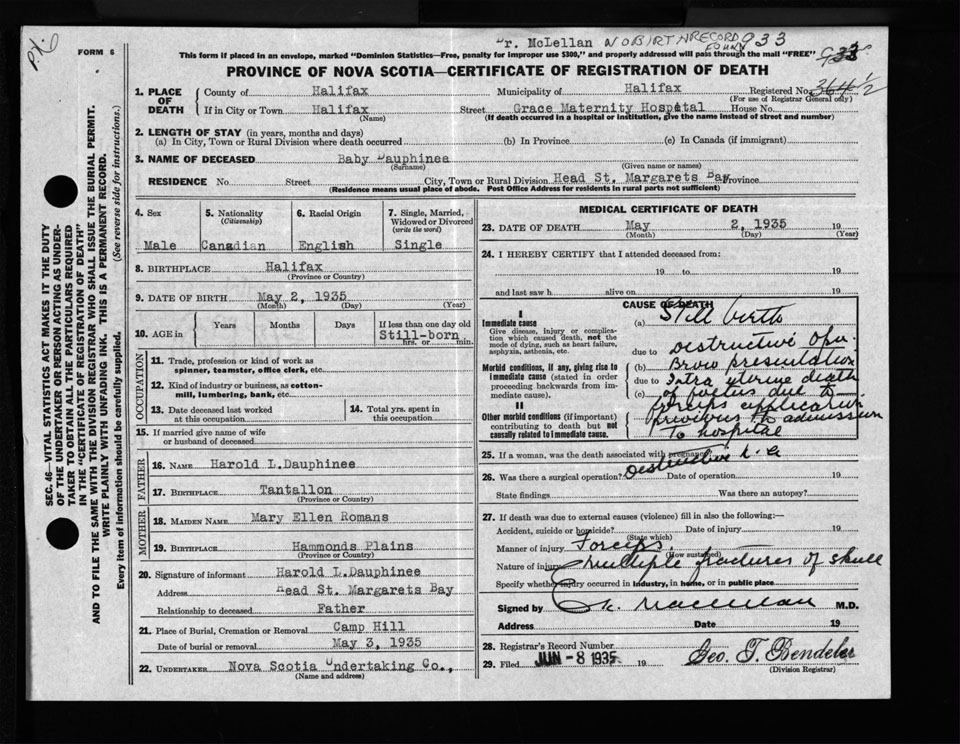 Dr. McLellan NO BIRTH RECORD FOUND 933
px 6
FORM 6
This form if placed in an envelope, marked "Dominion Statistics—Free, penalty for improper use $300," and properly addressed will pass through the mail "FREE" 933
PROVINCE OF NOVA SCOTIA—CERTIFICATE OF REGISTRATION OF DEATH
1. PLACE OF DEATH { County of Halifax Municipality of Halifax Registered No. 364½
(For use of Registrar General only)
If in City or Town Halifax Street Grace Maternity Hospital House No.
(Name) (If death occurred in a hospital or institution, give the name instead of street and number)
2. LENGTH OF STAY (in years, months and days)
(a) In City, Town or Rural Division where death occurred (b) In Province (c) In Canada (if immigrant)
3. NAME OF DECEASED Baby Dauphinee
(Surname) (Given name or names)
RESIDENCE No. Street City, Town or Rural Division Head St. Margarets Bay Province
(Residence means usual place of abode. Post Office Address for residents in rural parts not sufficient)
4. Sex
Male
5. Nationality
(Citizenship)
Canadian
6. Racial Origin
English
7. Single, Married, Widowed or Divorced
(write the word)
Single
8. BIRTHPLACE Halifax
(Province or Country)
9. DATE OF BIRTH May 2, 1935
(Month) (Day) (Year)
10. AGE in { Years Months Days If less than one day old
Still-born
hrs. or min.
OCCUPATION
11. Trade, profession or kind of work as
spinner, teamster, office clerk, etc.
12. Kind of industry or business, as cotton-
mill, lumbering, bank, etc.
13. Date deceased last worked
at this occupation
14. Total yrs. spent in
this occupation
15. If married give name of wife
or husband of deceased
FATHER
16. NAME Harold L.Dauphinee
17. BIRTHPLACE Tantallon
(Province or Country)
MOTHER
18. MAIDEN NAME Mary Ellen Romans
19. BIRTHPLACE Hammonds Plains
(Province or Country)
20. Signature of informant Harold L.Dauphinee
Address Head St. Margarets Bay
Relationship to deceased Father
21. Place of Burial, Cremation or Removal Camp Hill
Date of burial or removal May 3, 1935
22. UNDERTAKER Nova Scotia Undertaking Co.,
(Name and address)
MEDICAL CERTIFICATE OF DEATH
23. DATE OF DEATH May 2, 1935 19
(Month) (Day) (Year)
24. I HEREBY CERTIFY that I attended deceased from:
19 to 19
and last saw h alive on 19
CAUSE OF DEATH
I
Immediate cause
Give disease, injury or complication which caused death, not the mode of dying, such as heart failure, asphyxia, asthenia, etc.
Morbid conditions, if any, giving rise to immediate cause (stated in order proceeding backwards from immediate cause).
II
Other morbid conditions (if important) contributing to death but not causally related to immediate cause.
(a) Still birth
due to Destructive Op.
(b) Brow presentation
due to Intra uterine death
(c) of foetus due to
forceps application
previous to admission
to hospital
25. If a woman, was the death associated with pregnancy?
26. Was there a surgical operation? Destructive Date of operation 19
State findings Was there an autopsy?
27. If death was due to external causes (violence) fill in also the following:—
Accident, suicide or homicide? Date of injury 19
(State which)
Manner of injury Forceps
(How sustained)
Nature of injury multiple fractures of skull
Specify whether injury occurred in industry, in home, or in public place
Signed by K. MacLellan M.D.
Address Date 19
28. Registrar's Record Number
29. Filed JUN -8 1935 19 Geo. T. Bendeler
(Division Registrar)
SEC. 46—VITAL STATISTICS ACT MAKES IT THE DUTY
OF THE UNDERTAKER OR PERSON ACTING AS UNDER-
TAKER TO OBTAIN ALL THE PARTICULARS REQUIRED
IN THE "CERTIFICATE OF REGISTRATION OF DEATH"
AND TO FILE THE SAME WITH THE DIVISION REGISTRAR WHO SHALL ISSUE THE BURIAL PERMIT.
WRITE PLAINLY WITH UNFADING INK. THIS IS A PERMANENT RECORD.
Every item of information should be carefully supplied. (See reverse side for instructions.)